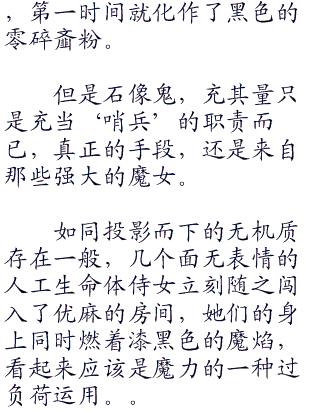 ，第一时间就化作了黑色的
零碎齑粉。
但是石像鬼，充其量只
是充当‘哨兵’的职责而
已，真正的手段，还是来自
那些强大的魔女。
如同投影而下的无机质
存在一般，几个面无表情的
人工生命体侍女立刻随之闯
入了优麻的房间，她们的身
上同时燃着漆黑色的魔焰，
看起来应该是魔力的一种过
负荷运用。。